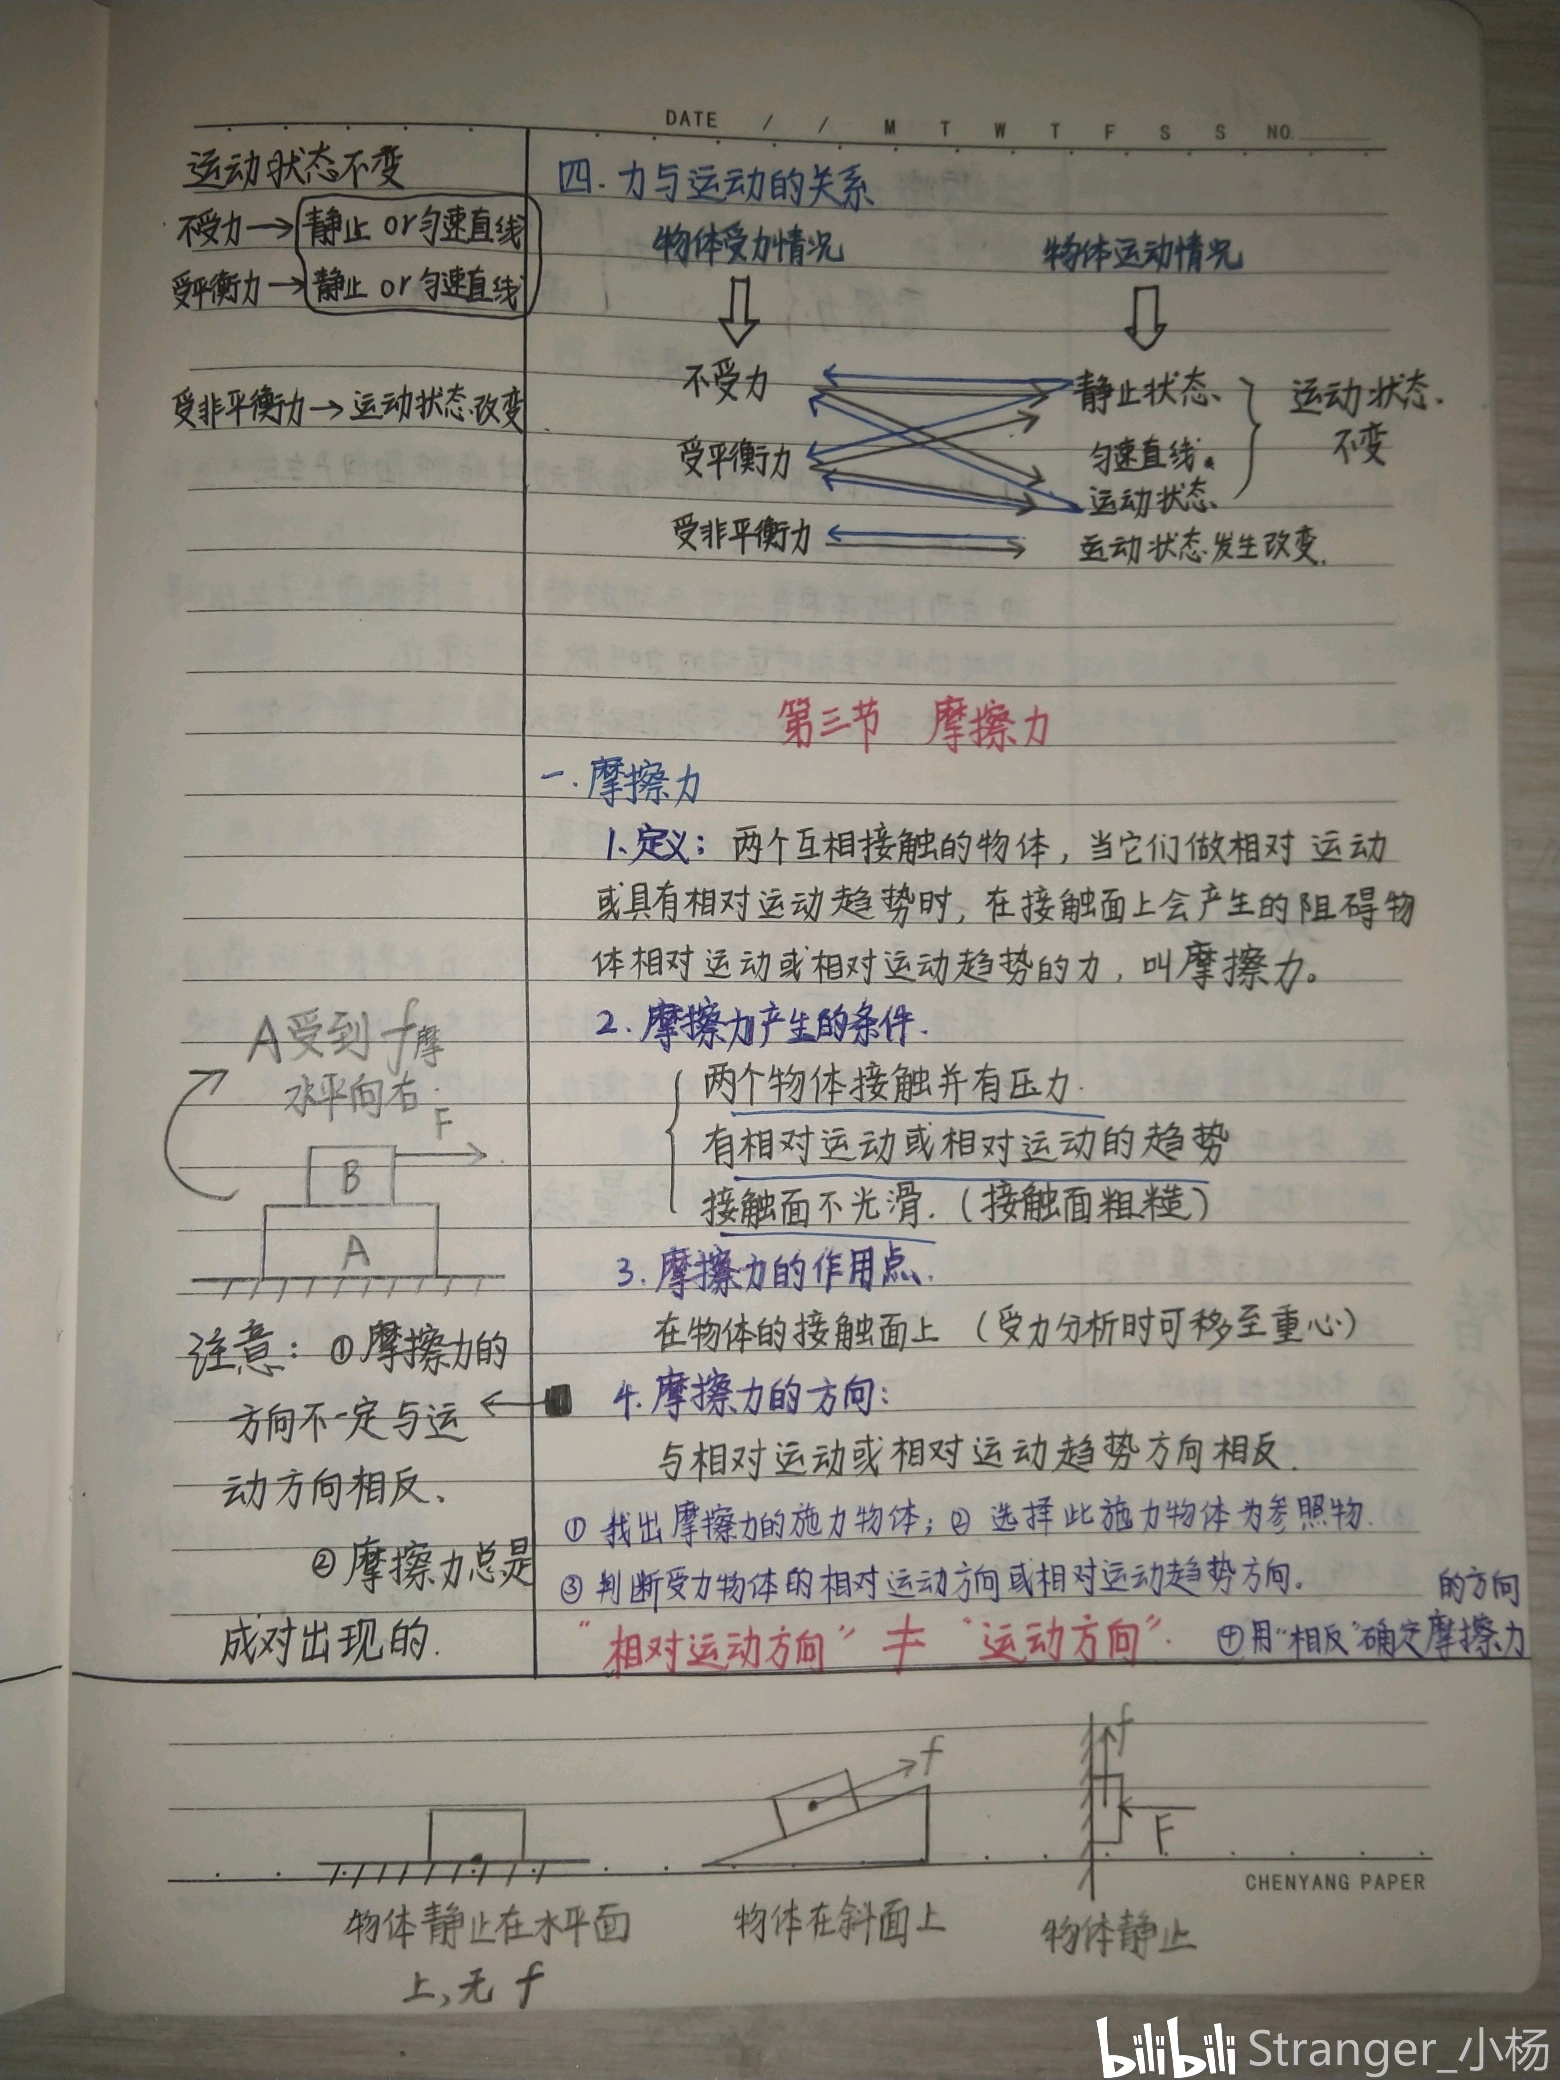 DATE / / M T W T F S S NO.
运动状态不变
不受力→静止 or 匀速直线
受平衡力→静止 or 匀速直线
受非平衡力→运动状态改变
四.力与运动的关系
物体受力情况 物体运动情况
不受力 静止状态 运动状态
受平衡力 匀速直线 不变
运动状态
受非平衡力 运动状态发生改变.
第三节 摩擦力
一.摩擦力
1.定义：两个互相接触的物体，当它们做相对运动
或具有相对运动趋势时，在接触面上会产生的阻碍物
体相对运动或相对运动趋势的力，叫摩擦力。
2.摩擦力产生的条件.
两个物体接触并有压力.
有相对运动或相对运动的趋势
接触面不光滑.（接触面粗糙）
3.摩擦力的作用点.
在物体的接触面上（受力分析时可移至重心）
4.摩擦力的方向：
与相对运动或相对运动趋势方向相反.
①找出摩擦力的施力物体；②选择此施力物体为参照物.
③判断受力物体的相对运动方向或相对运动趋势方向.
“相对运动方向”≠“运动方向”.
④用“相反”确定摩擦力
的方向
A受到f摩
水平向右.
F
B
A
注意：①摩擦力的
方向不一定与运
动方向相反、
②摩擦力总是
成对出现的.
f
f
F
CHENYANG PAPER
物体静止在水平面
上,无 f
物体在斜面上
物体静止
bilibili Stranger_小杨